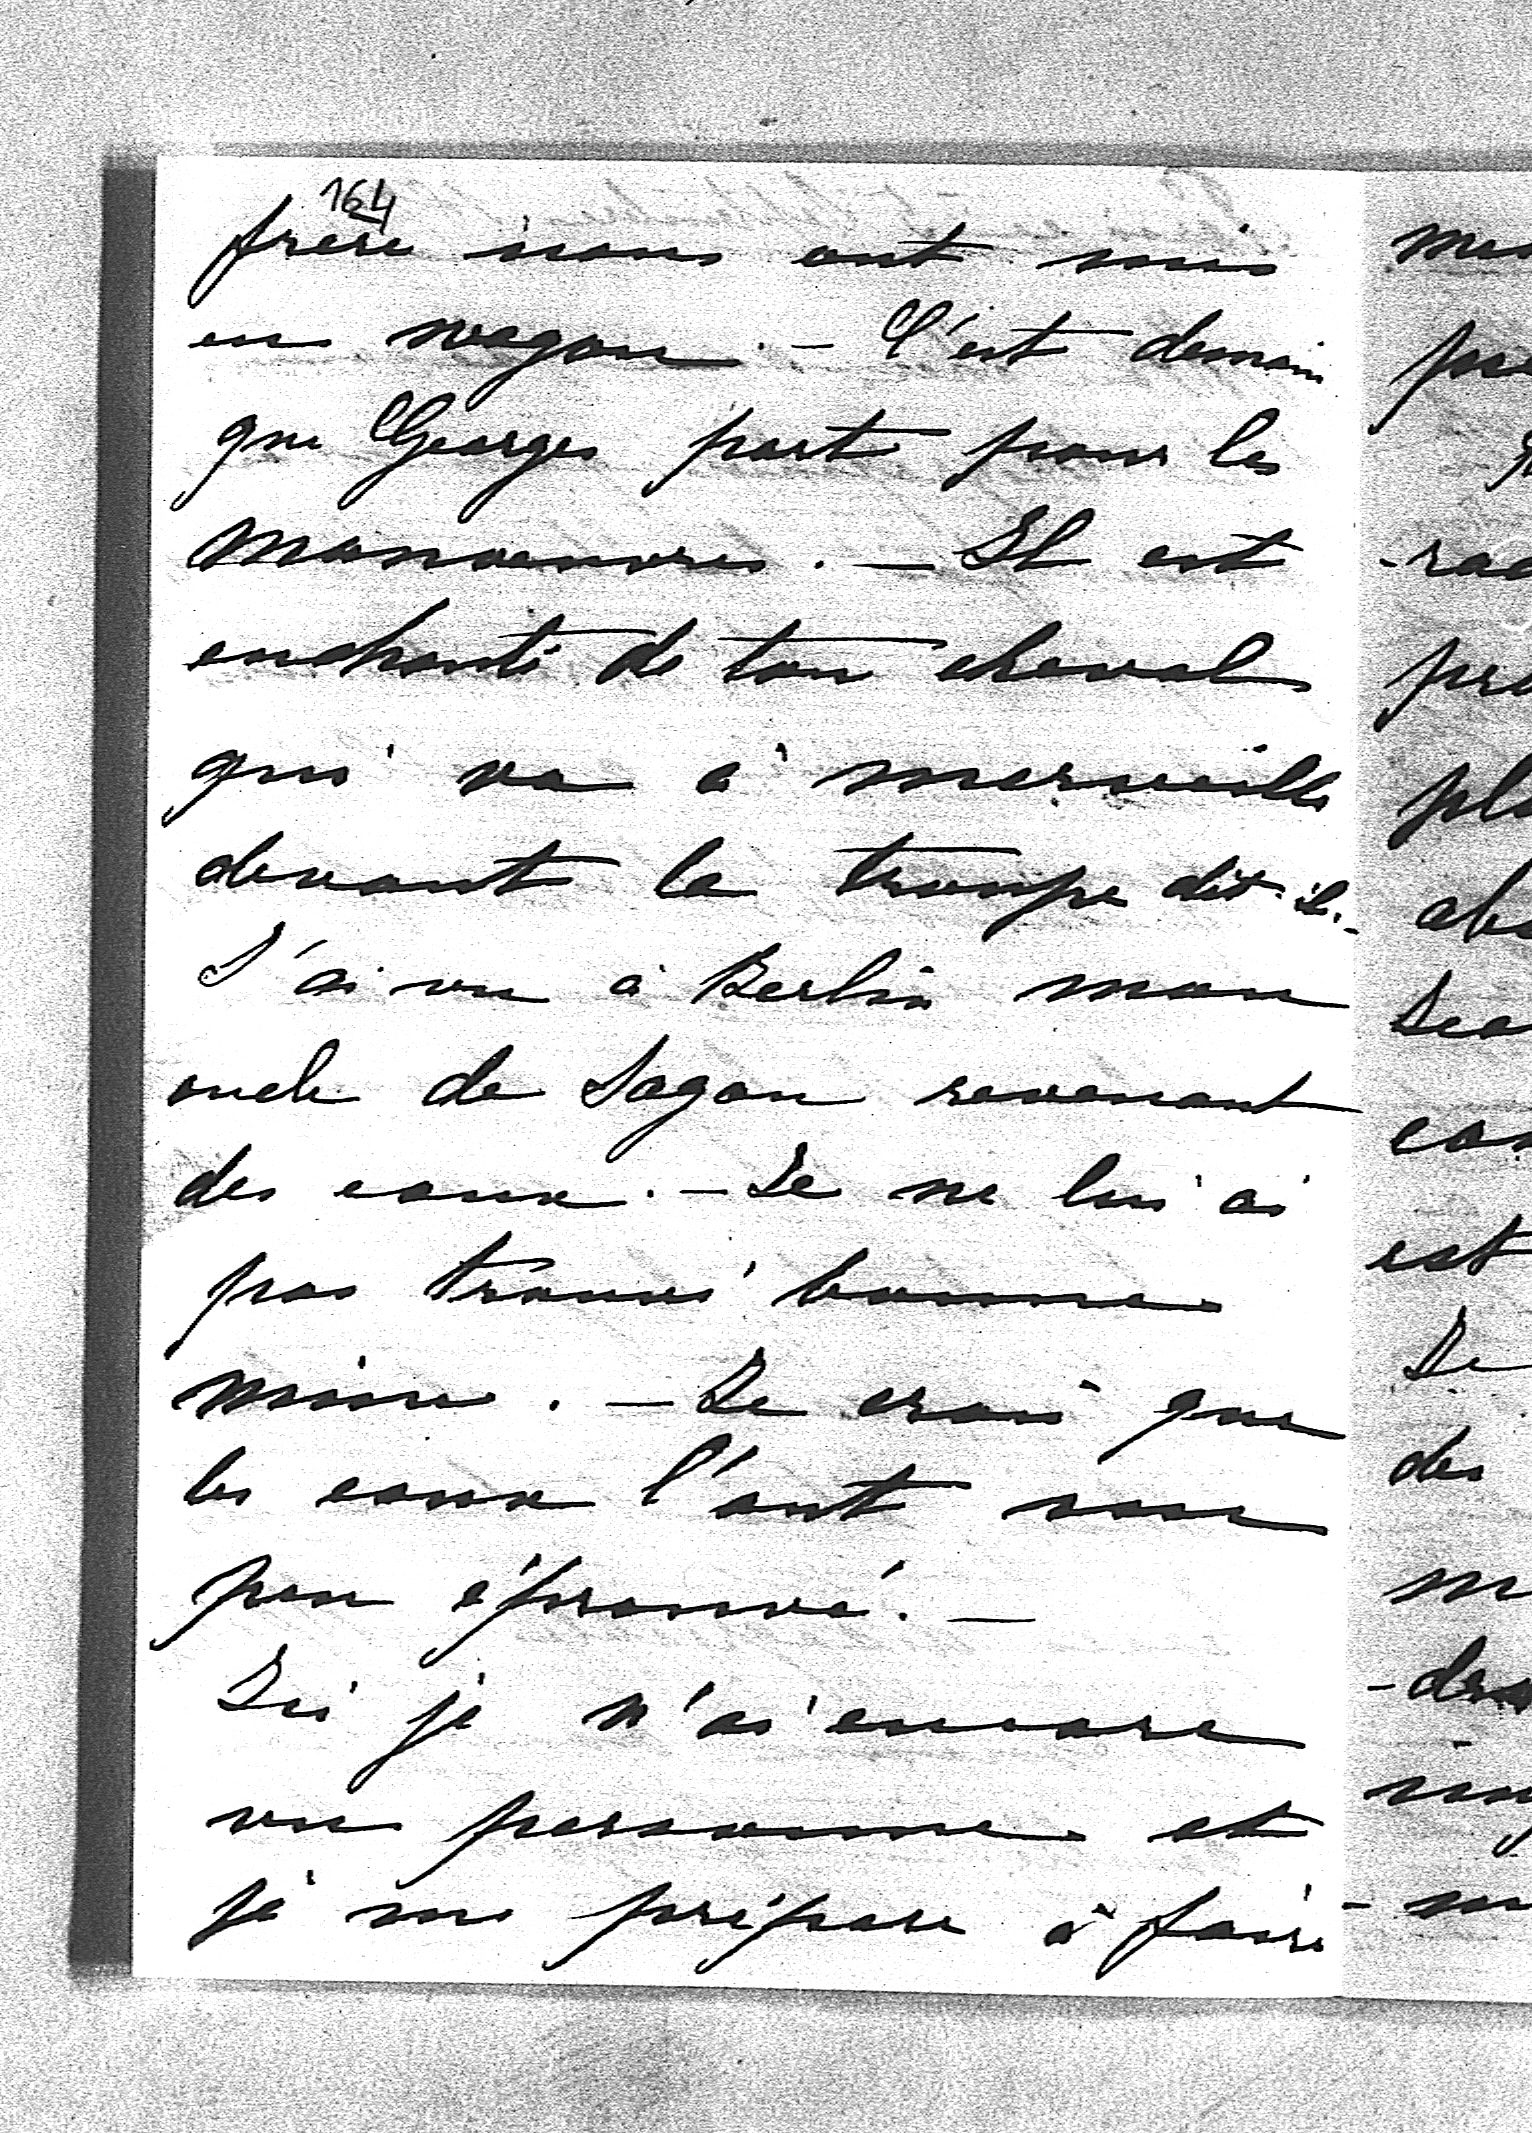 164
frère nous ont mis
en wagon. - C'est demain
que Georges part pour les
manoeuvres. - Il est
enchanté de ton cheval
qui va à merveille
devant la troupe dit-il. -
J'ai vu à Berlin mon
oncle de Sagan revenant
des eaux. - Je ne lui ai
pas trouvé bonne
mine. - Je crois que
les eaux l'ont un
peu éprouvé. -
Ici je n'ai encore
vu personne et
je me prépare à faire
pl
est
Je
des